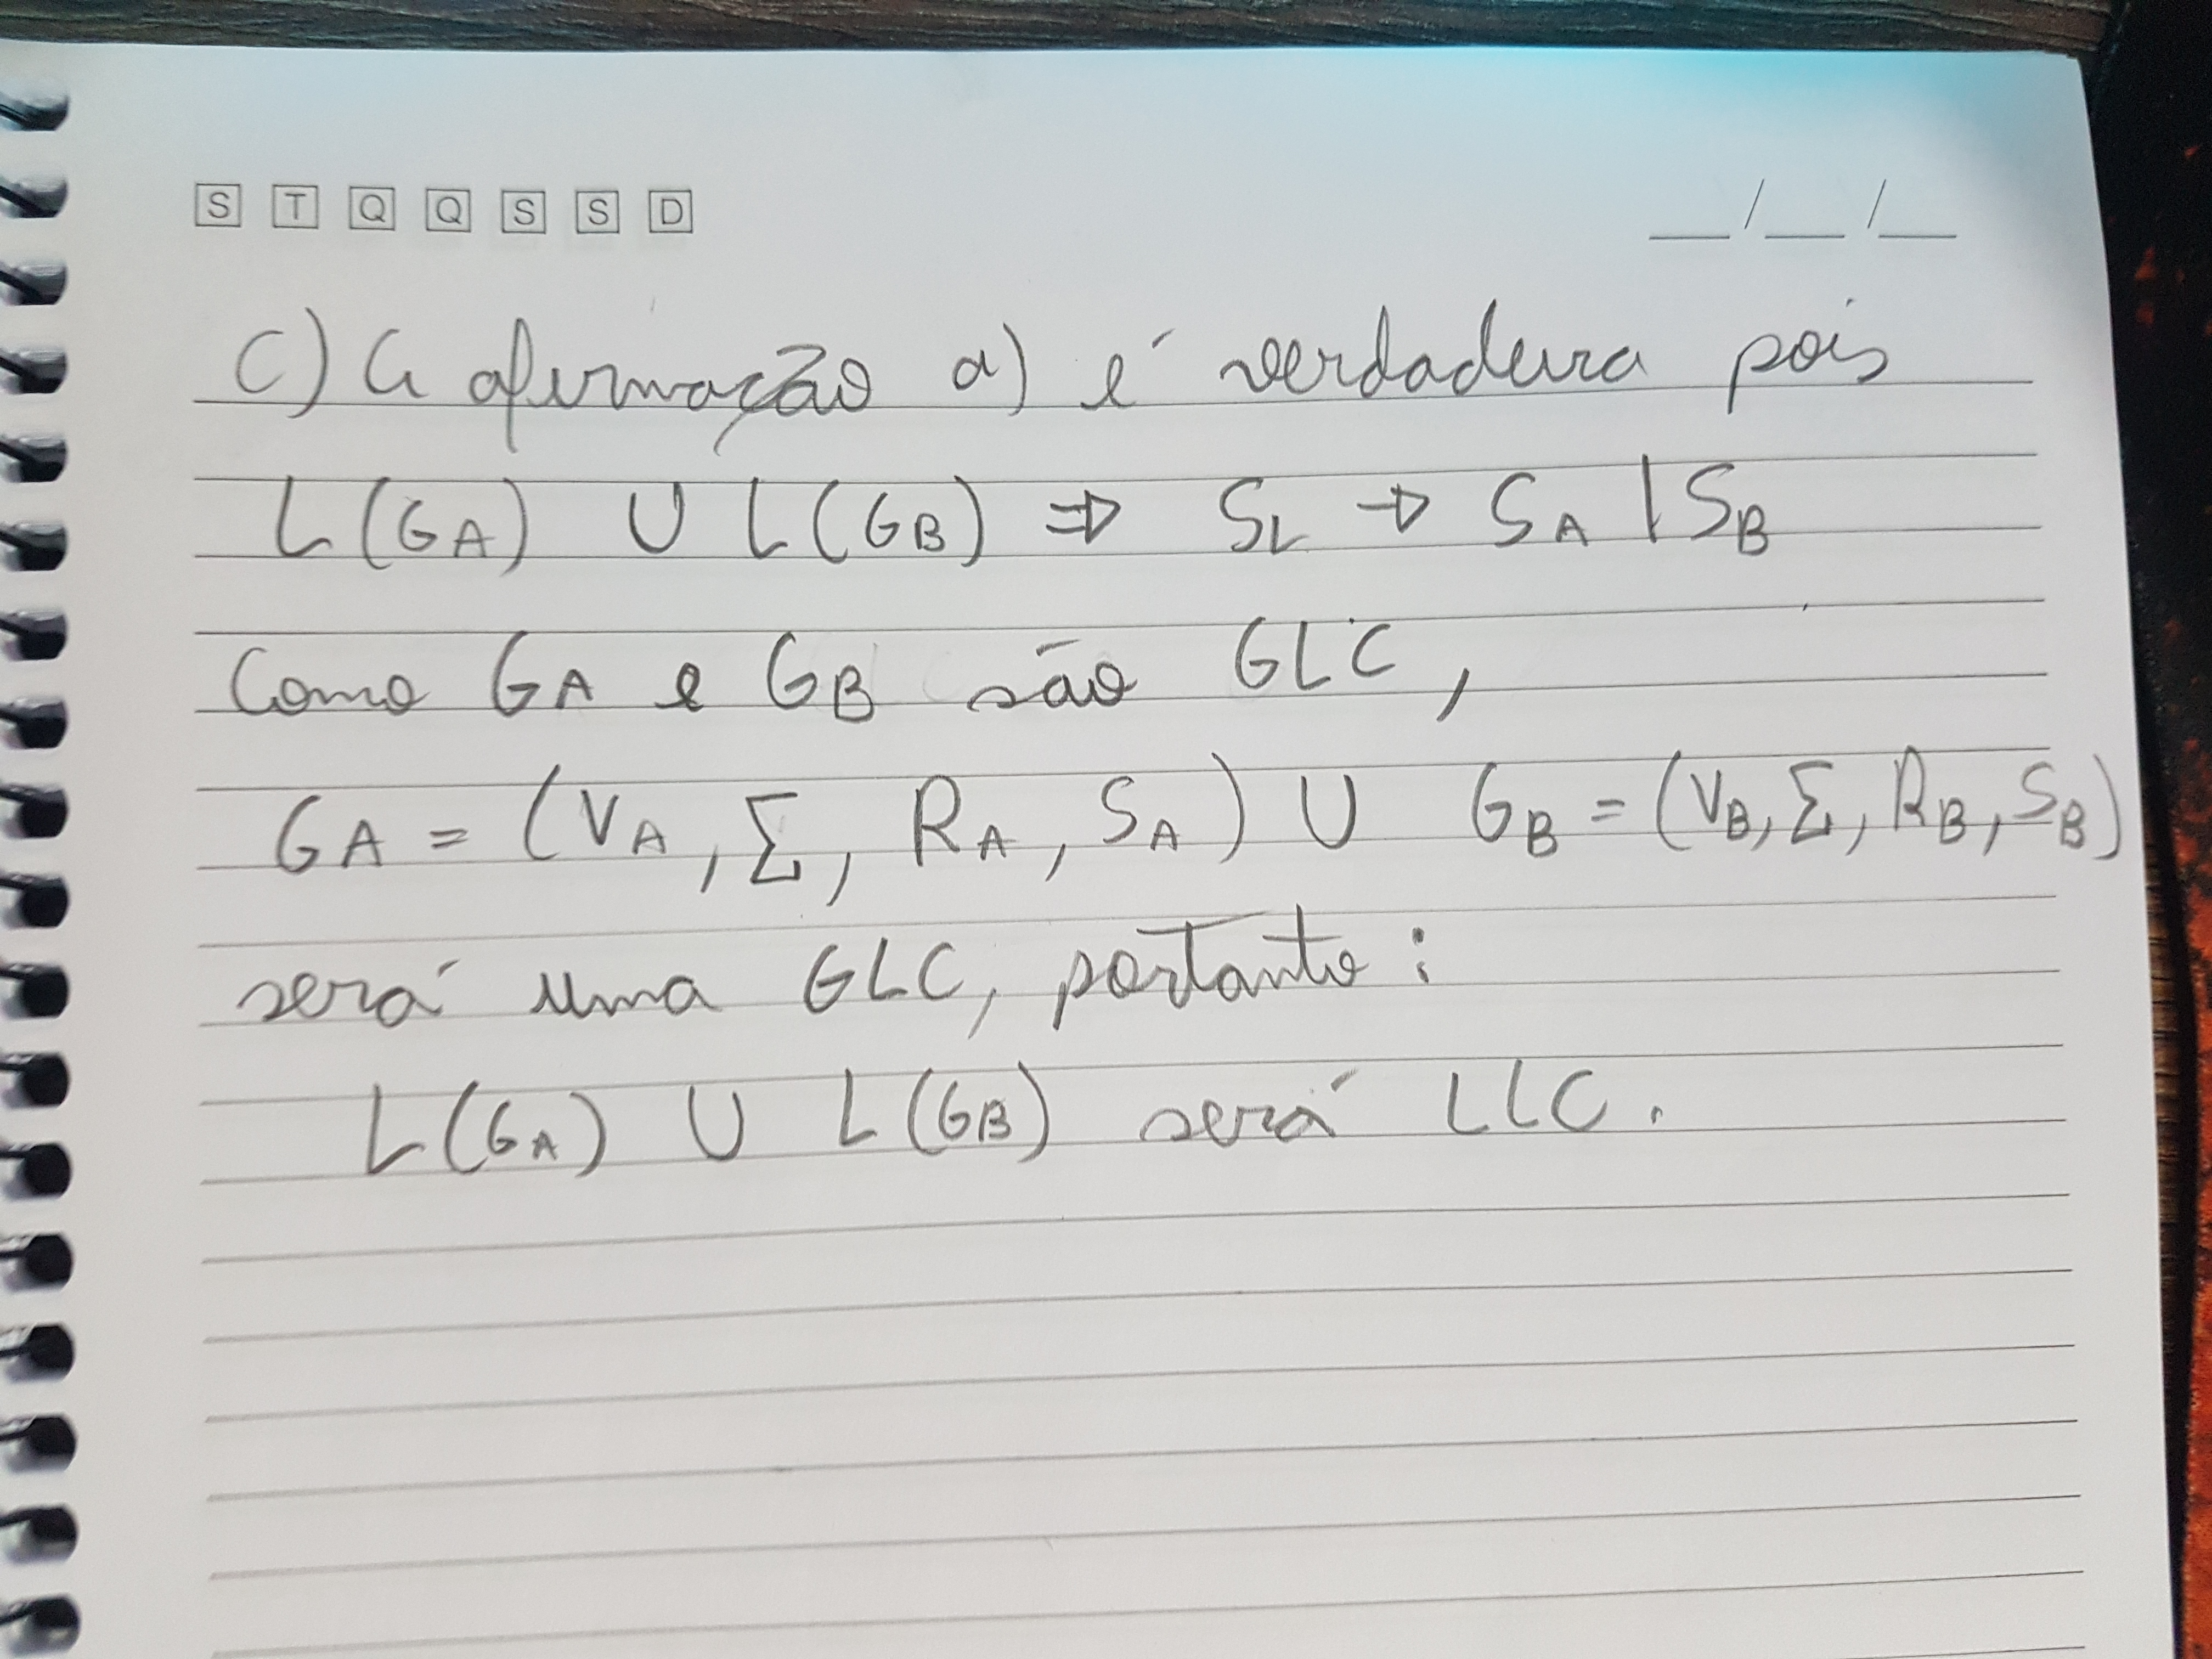 S T Q Q S S D __/__/__
C) A afirmação a) é verdadeira pois
L(GA) U L(GB) ⇒ SL → SA | SB
Como GA e GB são GLC,
GA = (VA, Σ, RA, SA) U GB = (VB, Σ, RB, SB)
será uma GLC, portanto:
L(GA) U L(GB) será LLC.